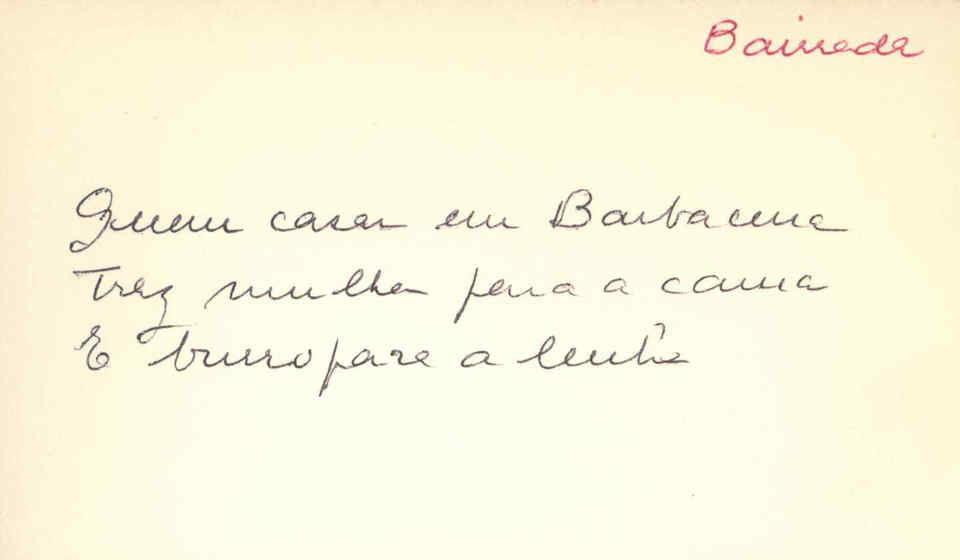 Bairrada
Quem casar em Barbacena
Trez mulher para a cama
E burro para a lenha